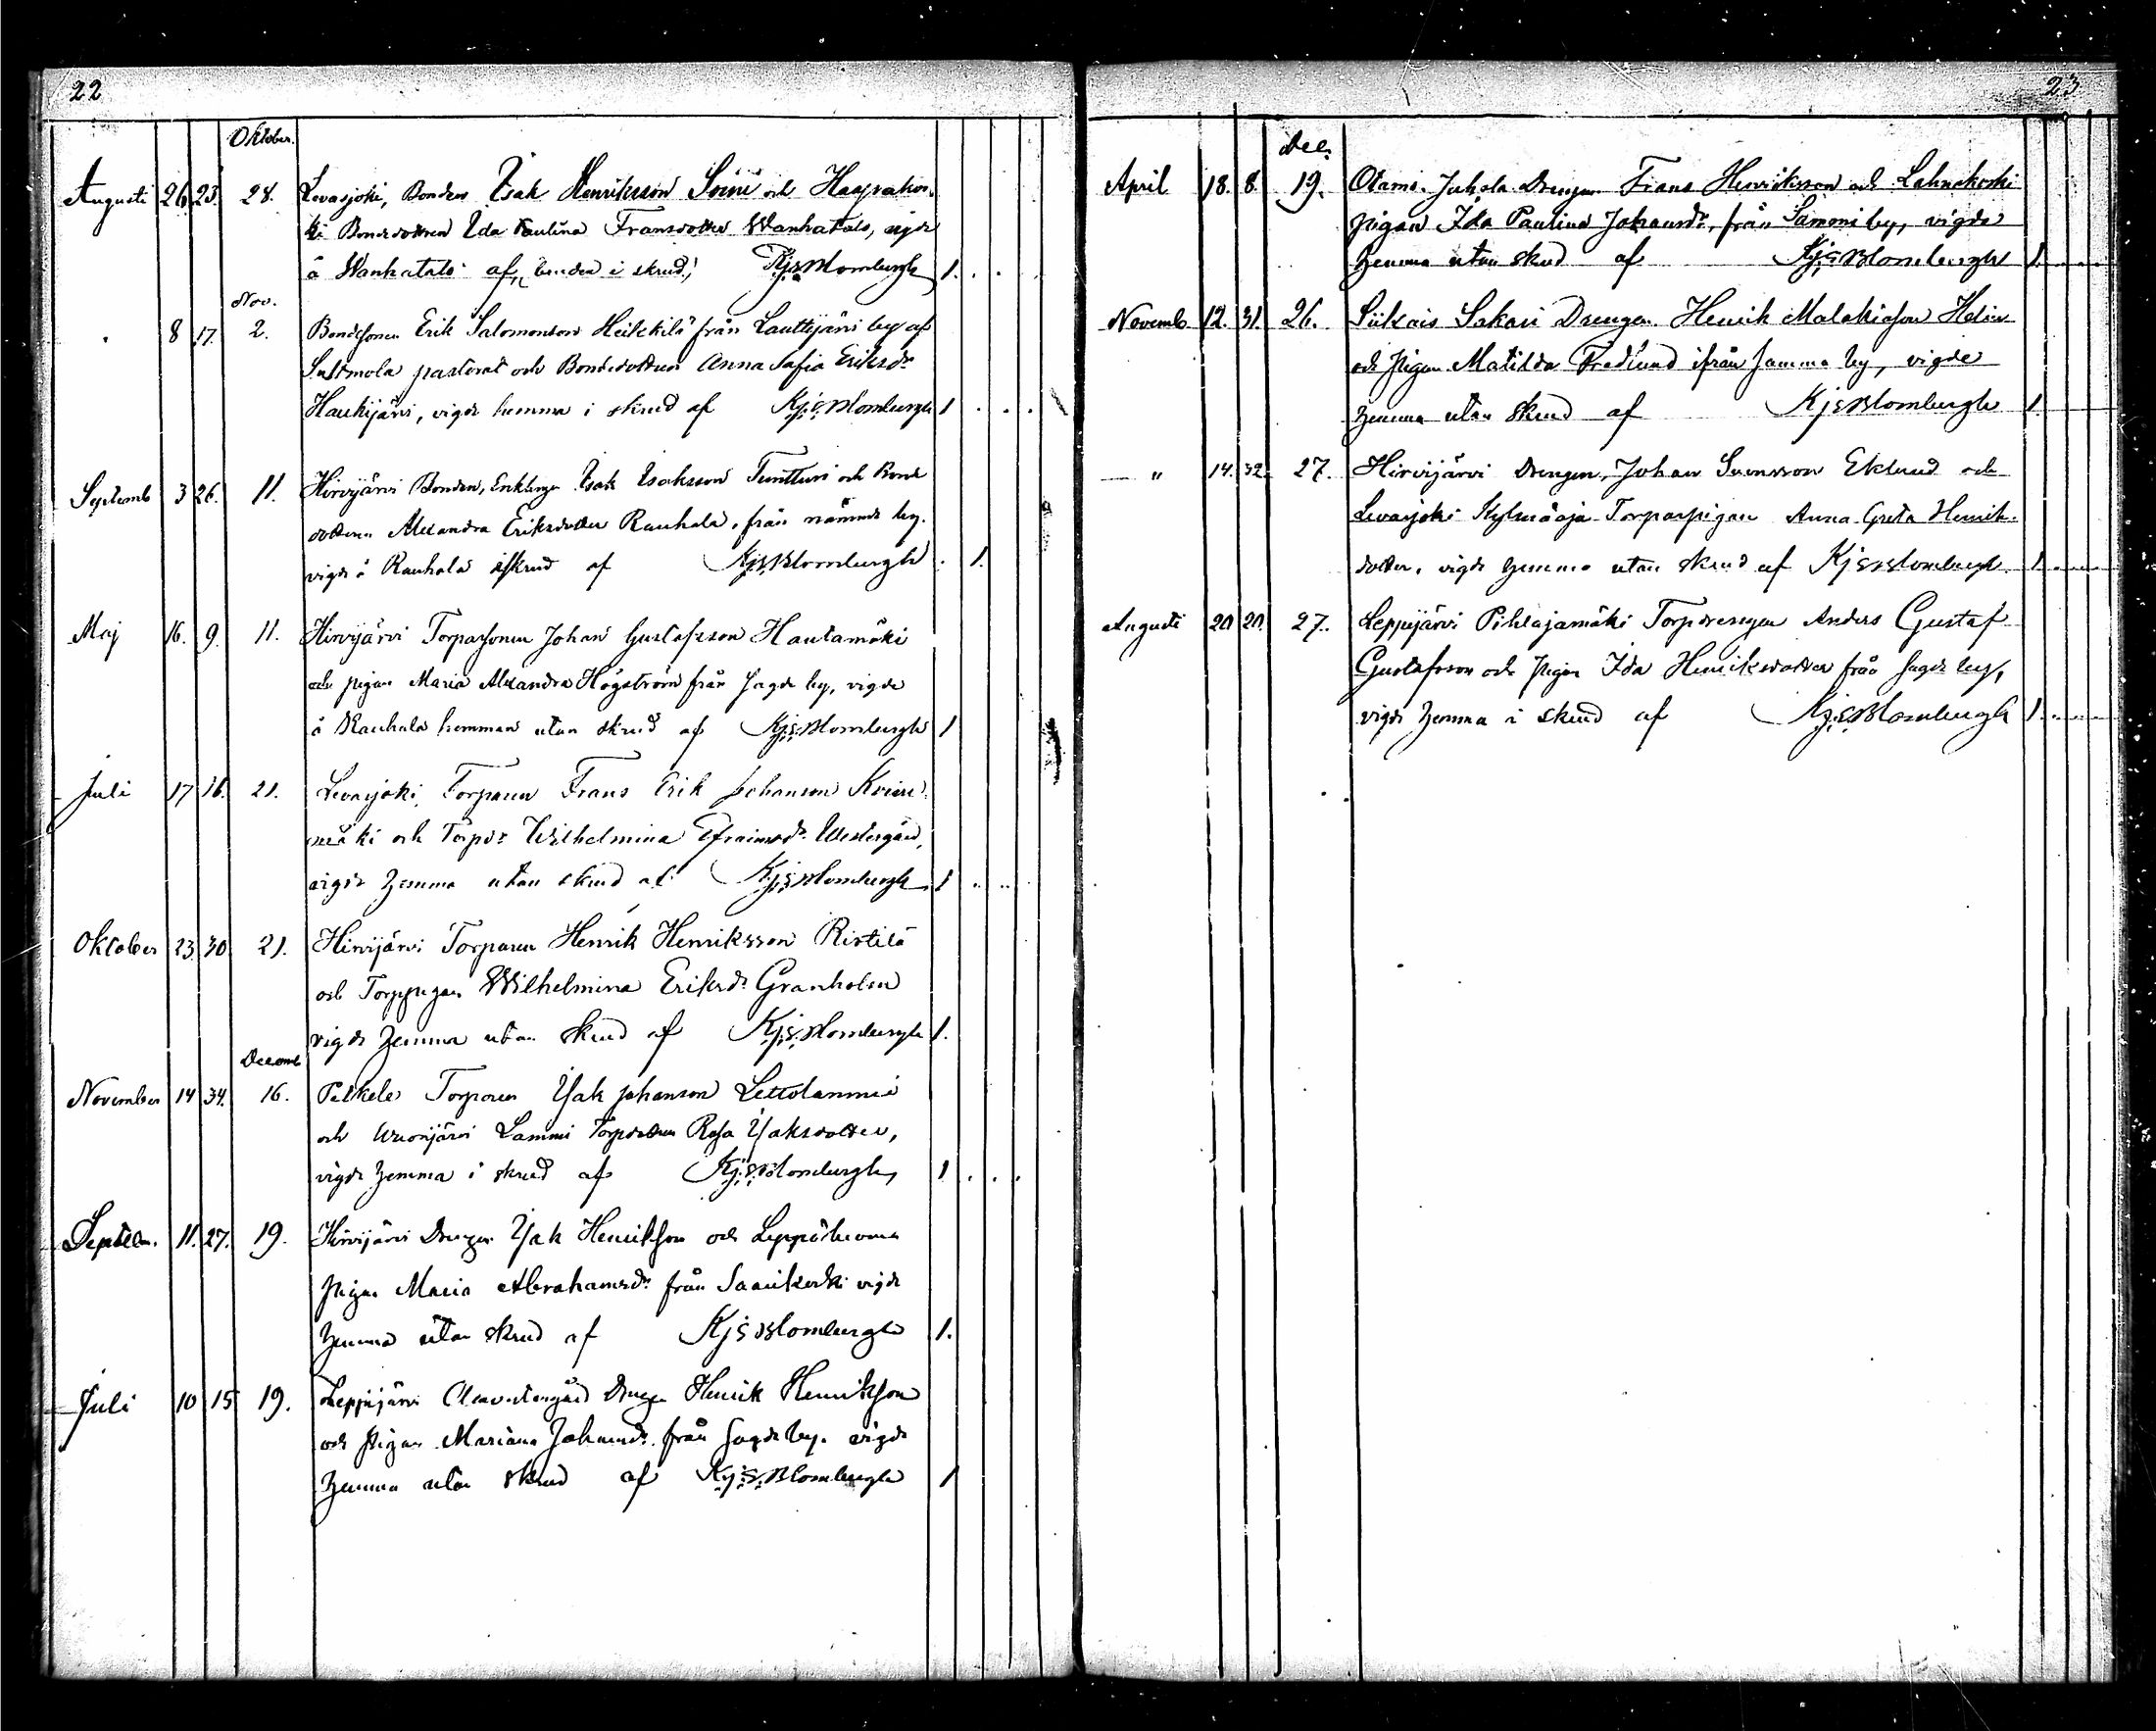 22
Oktober.
Augusti 26. 23. 28. Levasjoki, Bonden Isak Henriksson Soini och Haapakos-
ki Bondedottren Ida Paulina Fransdotter Wanhatalo, vigde
å Wanhatalo af, bruden i skrud, Kj: S: Blombergh 1.
Nov.
" 8 17. 2. Bondesonen Erik Salomonson Heikkilä från Lauttijärvi by af
Sastmola pastorat och Bondedottren Anna Safia Eriksdr
Haukijärvi, vigde hemma i skrud af Kj: S: Blombergh 1
Septemb 3 26. 11. Hirvijärvi Bonden, Enklingen Isak Isaksson Tuntturi och Bonde
dottren Alexandra Eriksdotter Rauhala, från nämnde by.
vigde å Rauhala i skrud af Kj: S: Blombergh 1.
Maj 16. 9. 11. Hirvijärvi Torparsonen Johan Gustafsson Hautamäki
och pigan Maria Alexandra Högström från sagde by, vigde
å Rauhala hemman utan skrud af Kj: S: Blombergh 1
Juli 17 16. 21. Levasjoki, Torparen Frans Erik Johanson
mäki och Torpdr Wilhelmina Efraimsdr Westergård,
vigde hemma utan skrud af Kj: S: Blombergh 1
Oktober 23. 30. 21. Hirvijärvi Torparen Henrik Henriksson Ristilä
och Torppigan Wilhelmina Eriksdr Granholm
vigde hemma utan skrud af Kj: S: Blombergh 1.
Decemb
November 14 34. 16. Torparen Isak Johanson
och Lammi Torpdottren Rosa Isaksdotter,
vigde hemma i skrud af Kj: S: Blombergh 1
Septem. 11. 27. 19. Hirvijärvi Drengen Isak Henriksson och
Pigan Maria Abrahamsdr från Saarikoski vigde
hemma utan skrud af Kj S Blombergh 1.
Juli 10 15 19. Leppijärvi Drengen Henrik Henriksson
och Pigan Mariana Johansdr från sagde by. vigde
hemma utan skrud af Kj: S: Blombergh 1
23
Dec.
April 18. 8. 19. Otamo Juhola Drengen Frans Henriksson och Lahnakoski
pigan Ida Paulina Johansdr, från Samoni by, vigde
hemma utan skrud af Kj: S: Blombergh 1.
Novemb 12. 31. 26. Siikais Sakari Drengen Henrik Malakiasson Helin
och Pigan Matilda Fredlund ifrån samma by, vigde
hemma utan skrud af Kj S Blombergh 1.
" 14. 32. 27. Hirvijärvi Drengen, Johan Svensson Eklund och
Levasjoki Kylmäoja Torparpigan Anna Greta Henrik-
dotter, vigde hemma utan skrud af Kj S Blombergh 1
Augusti 20 20. 27. Leppijärvi Pihlajamäki Torpdrengen Anders Gustaf
Gustafsson och Pigan Ida Henriksdotter från sagde by,
vigde hemma i skrud af Kj: S: Blombergh 1